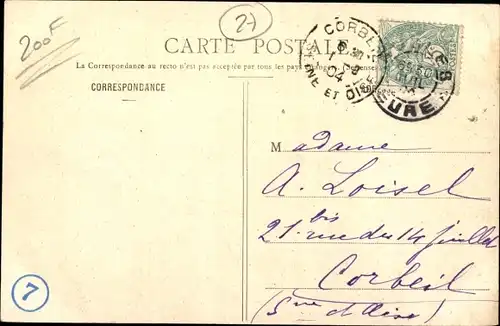 200F
27
CARTE POSTALE
La Correspondance au recto n'est pas acceptée par tous les pays étrangers. (Se renseigner
CORRESPONDANCE
CORBEIL
SEINE ET OISE
EURE
M adame
A. Loisel
21 bis rue du 14 juillet
Corbeil
(Sne et Oise)
7